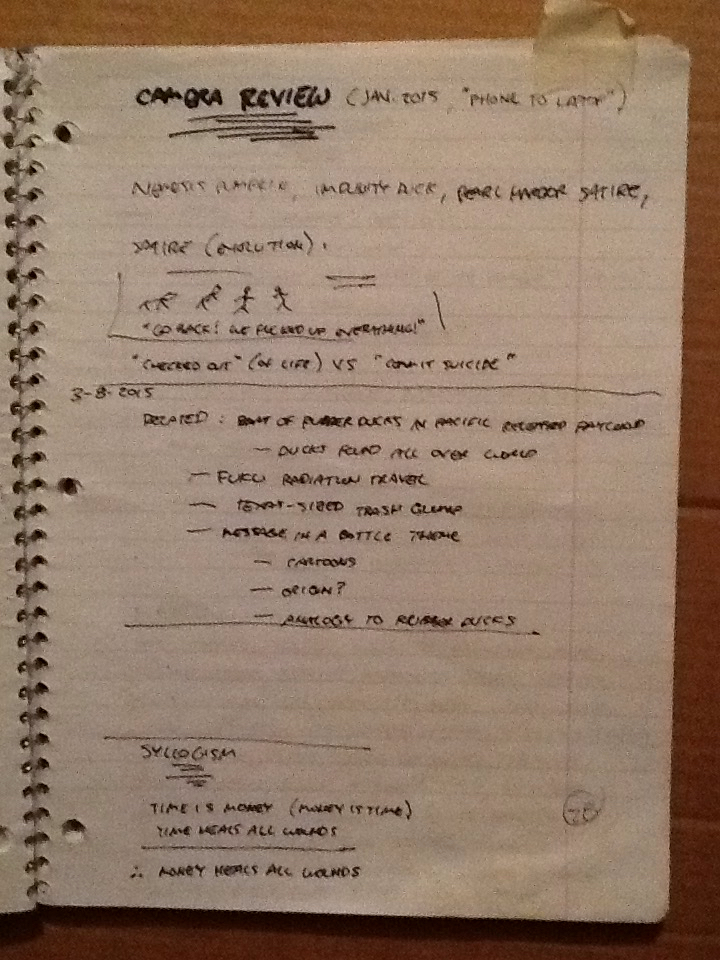 CAMERA REVIEW (JAN. 2015, "PHONE TO LAPTOP")
NEMESIS PUMPKIN, IMPUNITY DUCK, PEARL HARBOR SATIRE,
SATIRE (EVOLUTION).
"GO BACK! WE FUCKED UP EVERYTHING!"
"CHECKED OUT" (OF LIFE) VS "COMMIT SUICIDE"
3-8-2015
RELATED: BOAT OF RUBBER DUCKS IN PACIFIC RELEASED PAYLOAD
— DUCKS FOUND ALL OVER WORLD
— FUKU RADIATION TRAVEL
— TEXAS-SIZED TRASH CLUMP
— MESSAGE IN A BOTTLE THEME
— CARTOONS
— ORIGIN?
— ANALOGY TO RUBBER DUCKS
SYLLOGISM
TIME IS MONEY (MONEY IS TIME)
TIME HEALS ALL WOUNDS
∴ MONEY HEALS ALL WOUNDS